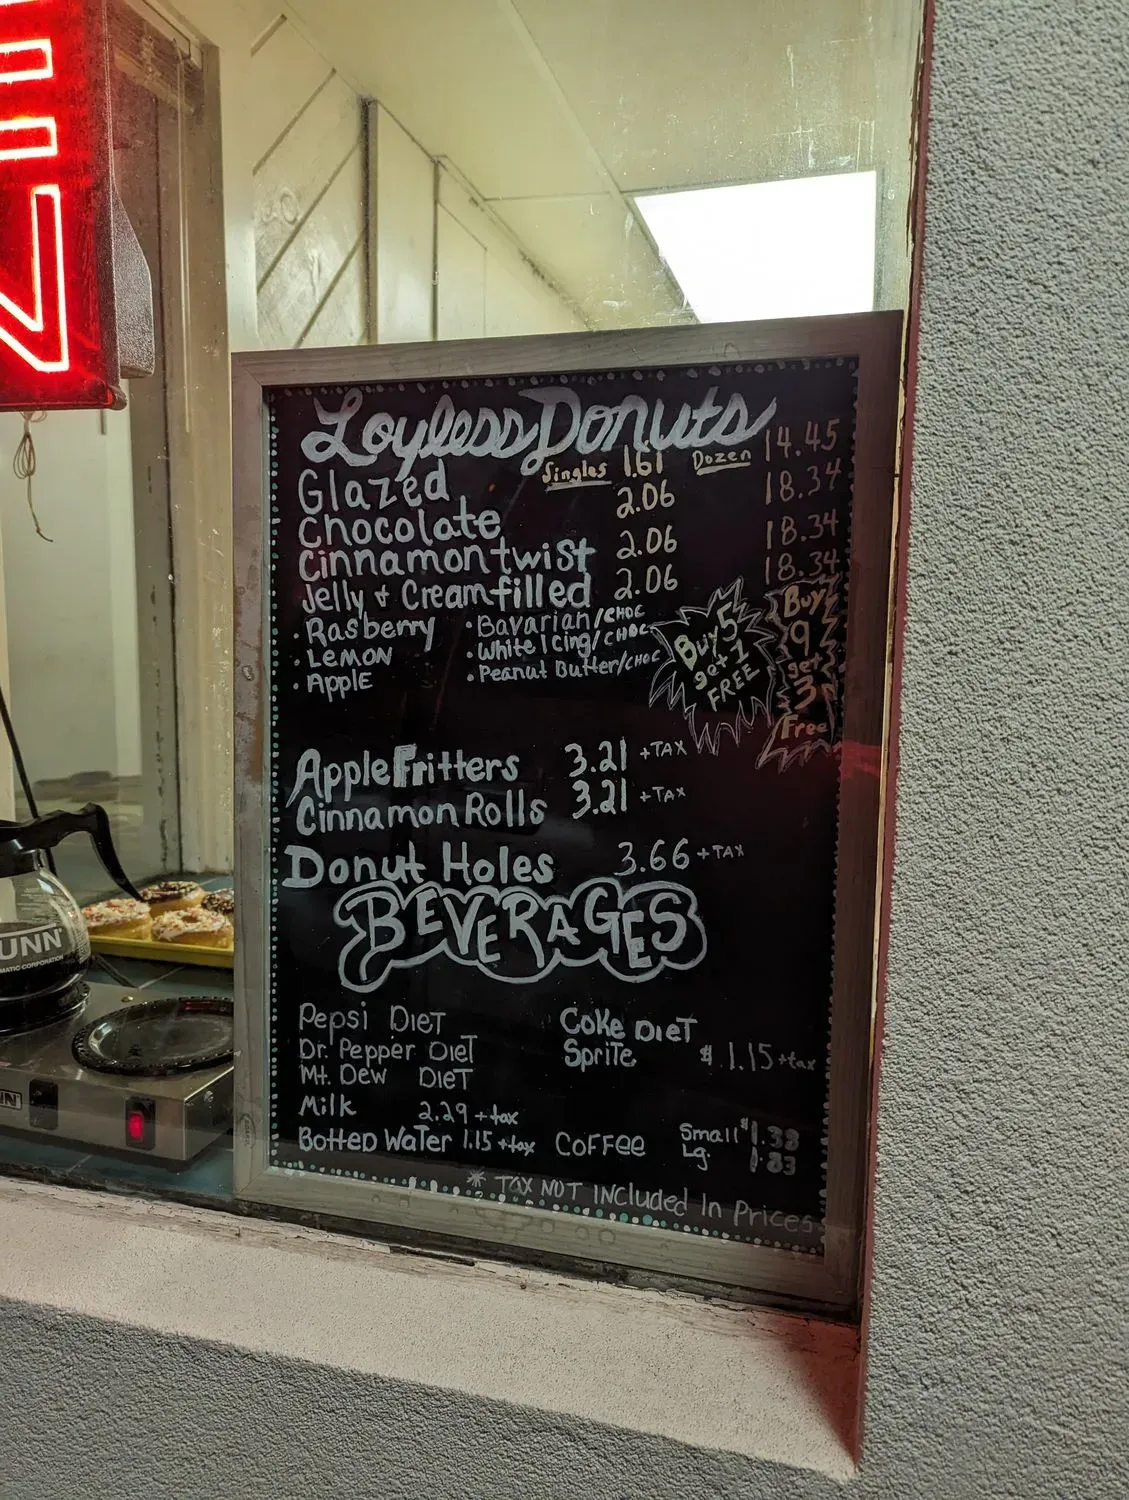 EN
Loyless Donuts
Singles Dozen
Glazed 1.61 14.45
Chocolate 2.06 18.34
Cinnamon twist 2.06 18.34
Jelly & Cream filled 2.06 18.34
• Rasberry • Bavarian/CHOC
• LEMON • White Icing/CHOC
• Apple • Peanut Butter/CHOC
Buy 5
get 1
FREE
Buy
9
get
3
Free
Apple Fritters 3.21 +TAX
Cinnamon Rolls 3.21 +TAX
Donut Holes 3.66 +TAX
BEVERAGES
Pepsi DIET Coke DIET
Dr. Pepper DIET Sprite $1.15+tax
Mt. Dew DIET
Milk 2.29+tax
Botted Water 1.15+tax COFFEE Small $1.38
Lg. 1.83
* TAX NOT INCluded In Prices
UNN
MATIC CORPORATION